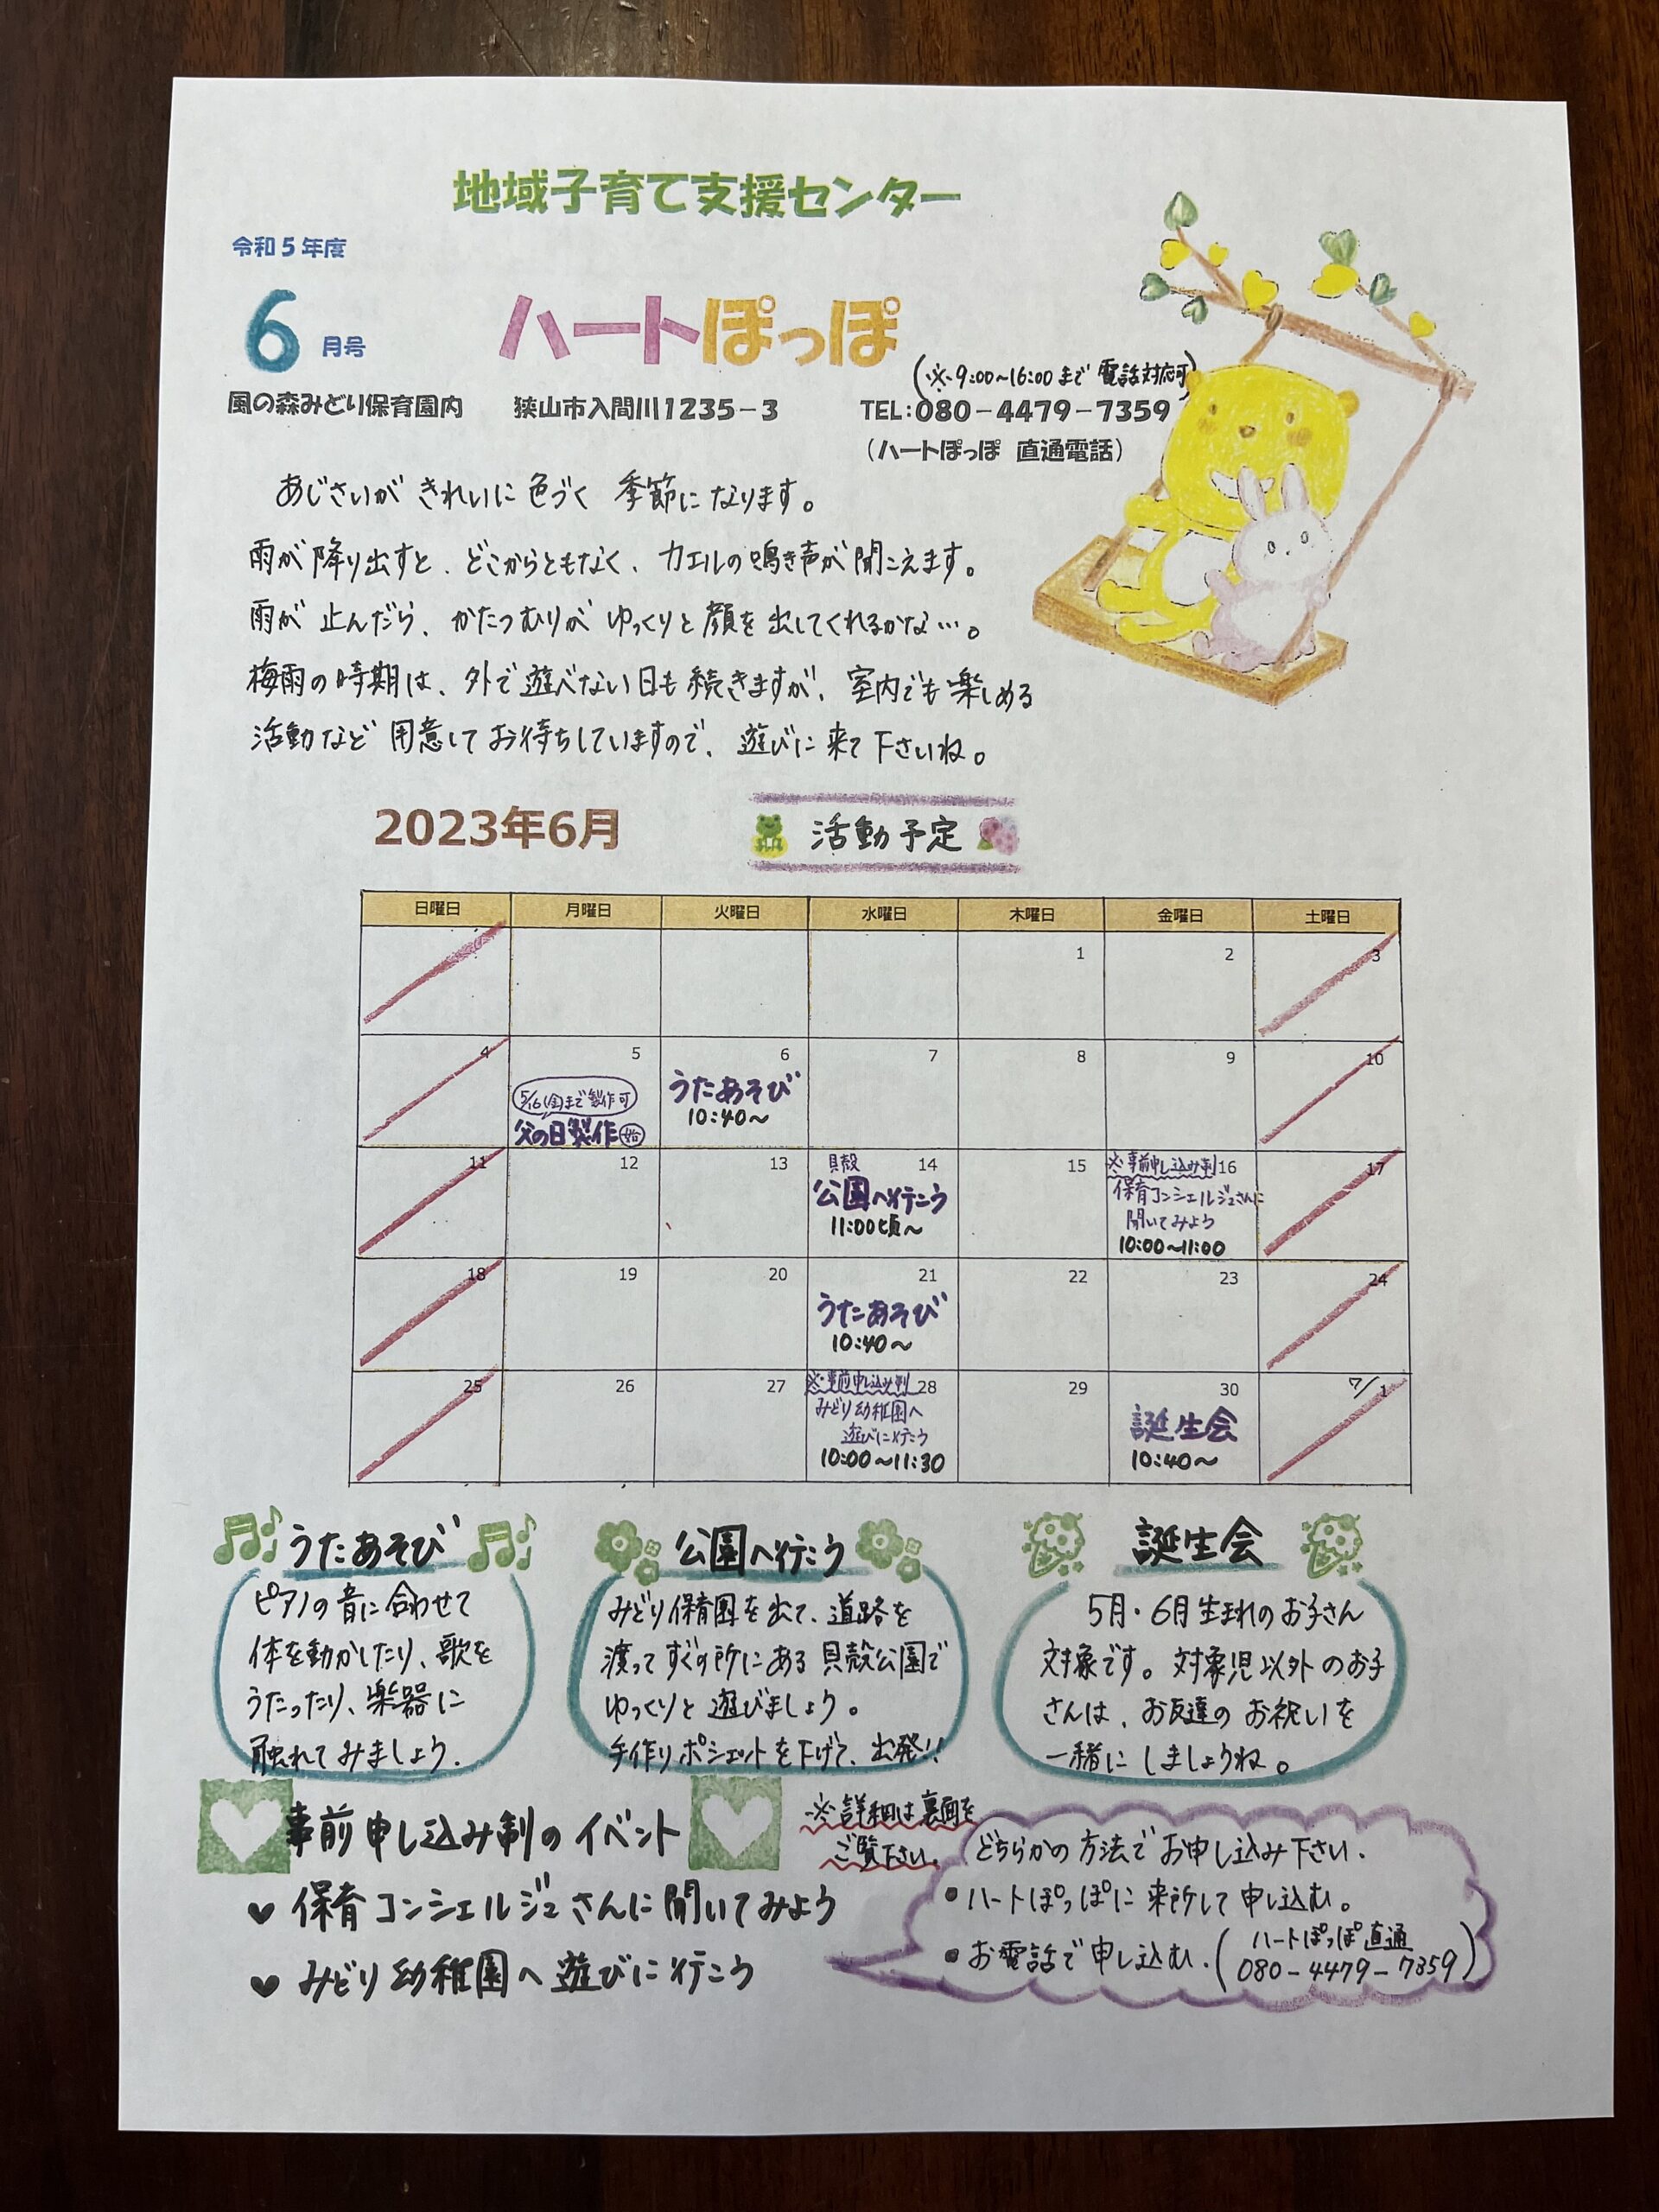 地域子育て支援センター
令和5年度
6月号
ハートぽっぽ
(※9:00~16:00まで 電話対応可)
風の森みどり保育園内 狭山市入間川1235-3 TEL:080-4479-7359
(ハートぽっぽ 直通電話)
あじさいが きれいに 色づく 季節に なります。
雨が 降り出すと、どこからともなく、カエルの鳴き声が聞こえます。
雨が 止んだら、かたつむりが ゆっくりと顔を出してくれるかな…。
梅雨の時期は、外で遊べない日も続きますが、室内でも楽しめる
活動など 用意して お待ちしていますので、遊びに来て下さいね。
2023年6月 活動予定
日曜日 月曜日 火曜日 水曜日 木曜日 金曜日 土曜日
1 2 3
4 5 6 7 8 9 10
5/16(金)まで製作可
父の日製作 始
うたあそび
10:40~
11 12 13 14 15 16 17
貝殻
公園へ行こう
11:00頃~
※事前申し込み制
保育コンシェルジュさんに
聞いてみよう
10:00~11:00
18 19 20 21 22 23 24
うたあそび
10:40~
25 26 27 28 29 30 7/1
※事前申し込み制
みどり幼稚園へ
遊びに行こう
10:00~11:30
誕生会
10:40~
うたあそび
ピアノの音に合わせて
体を動かしたり、歌を
うたったり、楽器に
触れてみましょう。
公園へ行こう
みどり保育園を出て、道路を
渡ってすぐの所にある貝殻公園で
ゆっくりと遊びましょう。
手作りポシェットを下げて、出発!!
誕生会
5月・6月生まれのお子さん
対象です。対象児以外のお子
さんは、お友達のお祝いを
一緒にしましょうね。
事前申し込み制のイベント
※詳細は裏面を
ご覧下さい。
保育コンシェルジュさんに聞いてみよう
みどり幼稚園へ遊びに行こう
どちらかの方法でお申し込み下さい。
•ハートぽっぽに来所して申し込む。
•お電話で申し込む。(ハートぽっぽ直通
080-4479-7359)